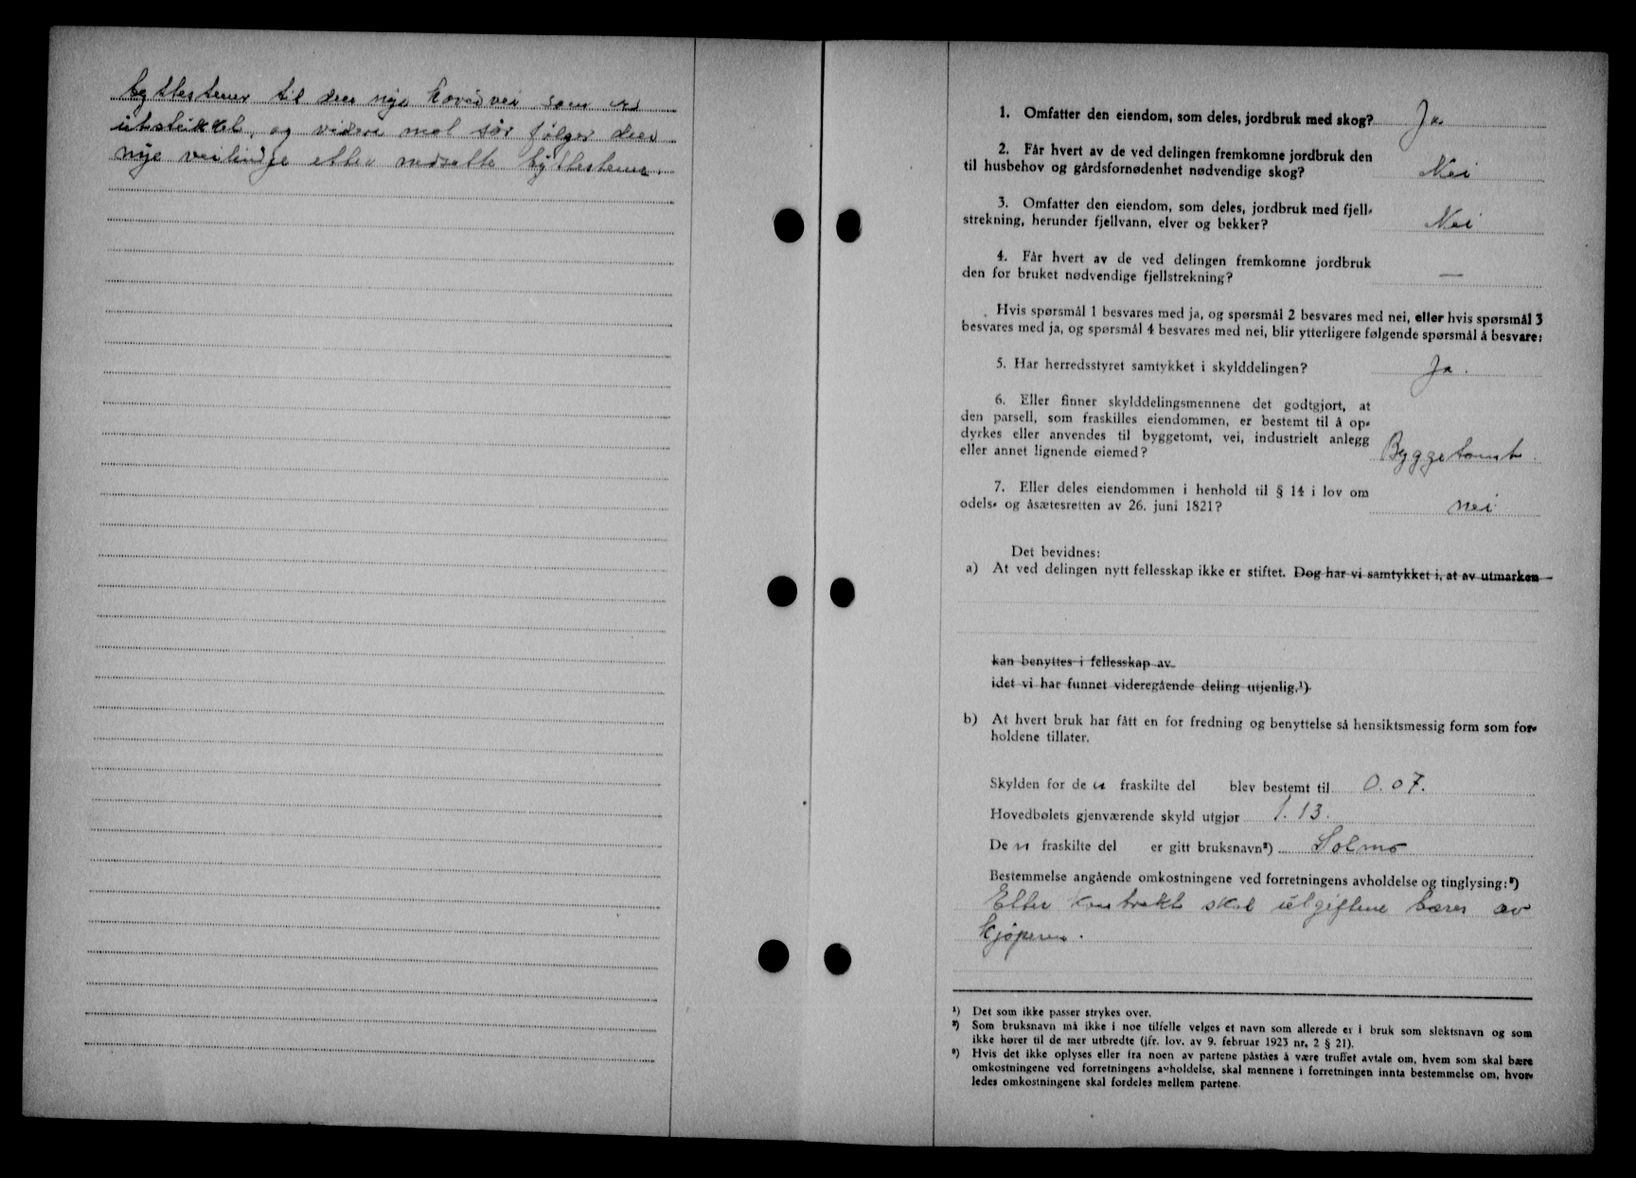 byttestener til den nye hovedvei som er
utstukket, og videre mot sør følger den
nye veilindje etter nedsatte byttestene.
1. Omfatter den eiendom, som deles, jordbruk med skog? Ja
2. Får hvert av de ved delingen fremkomne jordbruk den
til husbehov og gårdsfornødenhet nødvendige skog? Nei
3. Omfatter den eiendom, som deles, jordbruk med fjell-
strekning, herunder fjellvann, elver og bekker? Nei
4. Får hvert av de ved delingen fremkomne jordbruk
den for bruket nødvendige fjellstrekning? —
Hvis spørsmål 1 besvares med ja, og spørsmål 2 besvares med nei, eller hvis spørsmål 3
besvares med ja, og spørsmål 4 besvares med nei, blir ytterligere følgende spørsmål å besvare:
5. Har herredsstyret samtykket i skylddelingen? Ja.
6. Eller finner skylddelingsmennene det godtgjort, at
den parsell, som fraskilles eiendommen, er bestemt til å op-
dyrkes eller anvendes til byggetomt, vei, industrielt anlegg
eller annet lignende øiemed? Byggetomt.
7. Eller deles eiendommen i henhold til § 14 i lov om
odels- og åsætesretten av 26. juni 1821? nei
Det bevidnes:
a) At ved delingen nytt fellesskap ikke er stiftet. Dog har vi samtykket i, at av utmarken
kan benyttes i fellesskap av
idet vi har funnet videregående deling utjenlig.¹)
b) At hvert bruk har fått en for fredning og benyttelse så hensiktsmessig form som for-
holdene tillater.
Skylden for den fraskilte del blev bestemt til 0.07.
Hovedbølets gjenværende skyld utgjør 1.13.
Den fraskilte del er gitt bruksnavn²) Solmo
Bestemmelse angående omkostningene ved forretningens avholdelse og tinglysing:³)
Etter kontrakt skal utgiftene bæres av
kjøperen.
¹) Det som ikke passer strykes over.
²) Som bruksnavn må ikke i noe tilfelle velges et navn som allerede er i bruk som slektsnavn og som
ikke hører til de mer utbredte (jfr. lov. av 9. februar 1923 nr. 2 § 21).
³) Hvis det ikke oplyses eller fra noen av partene påståes å være truffet avtale om, hvem som skal bære
omkostningene ved forretningens avholdelse, skal mennene i forretningen innta bestemmelse om, hvor-
ledes omkostningene skal fordeles mellem partene.